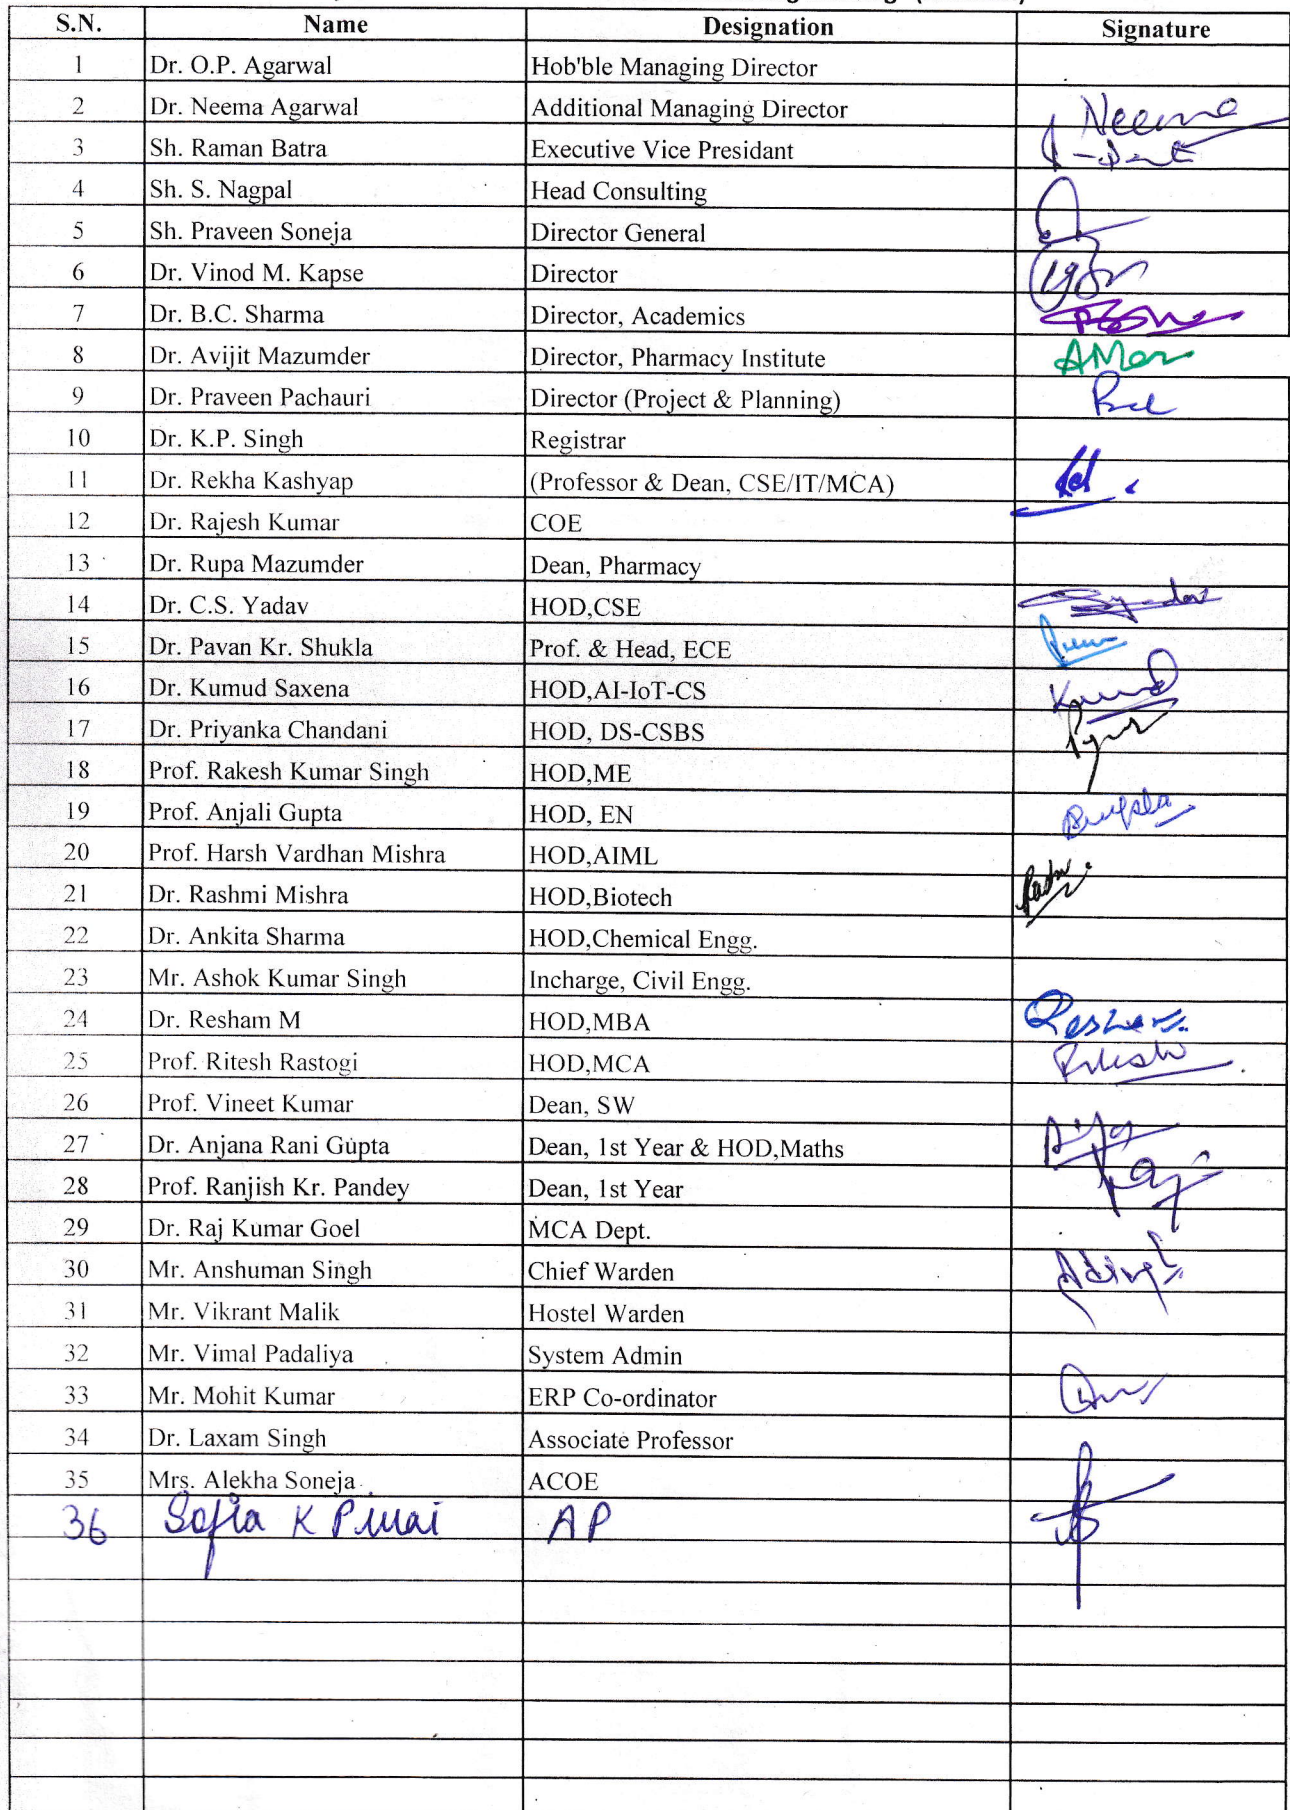 S.N. Name Designation Signature
1 Dr. O.P. Agarwal Hob'ble Managing Director
2 Dr. Neema Agarwal Additional Managing Director Neema
3 Sh. Raman Batra Executive Vice Presidant
4 Sh. S. Nagpal Head Consulting
5 Sh. Praveen Soneja Director General
6 Dr. Vinod M. Kapse Director
7 Dr. B.C. Sharma Director, Academics
8 Dr. Avijit Mazumder Director, Pharmacy Institute
9 Dr. Praveen Pachauri Director (Project & Planning)
10 Dr. K.P. Singh Registrar
11 Dr. Rekha Kashyap (Professor & Dean, CSE/IT/MCA)
12 Dr. Rajesh Kumar COE
13 Dr. Rupa Mazumder Dean, Pharmacy
14 Dr. C.S. Yadav HOD,CSE
15 Dr. Pavan Kr. Shukla Prof. & Head, ECE
16 Dr. Kumud Saxena HOD,AI-IoT-CS
17 Dr. Priyanka Chandani HOD, DS-CSBS
18 Prof. Rakesh Kumar Singh HOD,ME
19 Prof. Anjali Gupta HOD, EN
20 Prof. Harsh Vardhan Mishra HOD,AIML
21 Dr. Rashmi Mishra HOD,Biotech
22 Dr. Ankita Sharma HOD,Chemical Engg.
23 Mr. Ashok Kumar Singh Incharge, Civil Engg.
24 Dr. Resham M HOD,MBA
25 Prof. Ritesh Rastogi HOD,MCA
26 Prof. Vineet Kumar Dean, SW
27 Dr. Anjana Rani Gupta Dean, 1st Year & HOD,Maths
28 Prof. Ranjish Kr. Pandey Dean, 1st Year
29 Dr. Raj Kumar Goel MCA Dept.
30 Mr. Anshuman Singh Chief Warden
31 Mr. Vikrant Malik Hostel Warden
32 Mr. Vimal Padaliya System Admin
33 Mr. Mohit Kumar ERP Co-ordinator
34 Dr. Laxam Singh Associate Professor
35 Mrs. Alekha Soneja ACOE
36 Sofia K Pillai AP